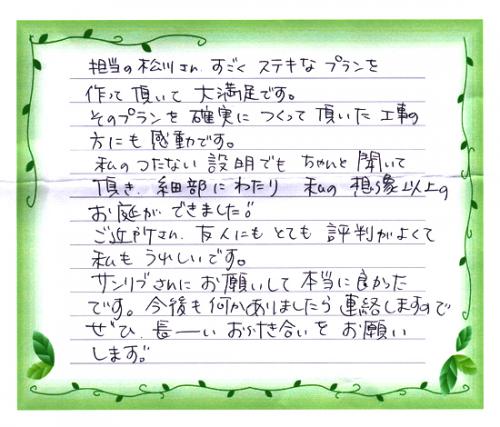 担当の松川さん、すごくステキなプランを
作って頂いて大満足です。
そのプランを確実につくって頂いた工事の
方にも感動です。
私のつたない説明でもちゃんと聞いて
頂き、細部にわたり 私の想像以上の
お庭ができました!!
ご近所さん、友人にもとても評判がよくて
私もうれしいです。
サンリブさんにお願いして本当に良かった
です。今後も何かありましたら連絡しますので
ぜひ、長ーいお付き合いをお願い
します!!